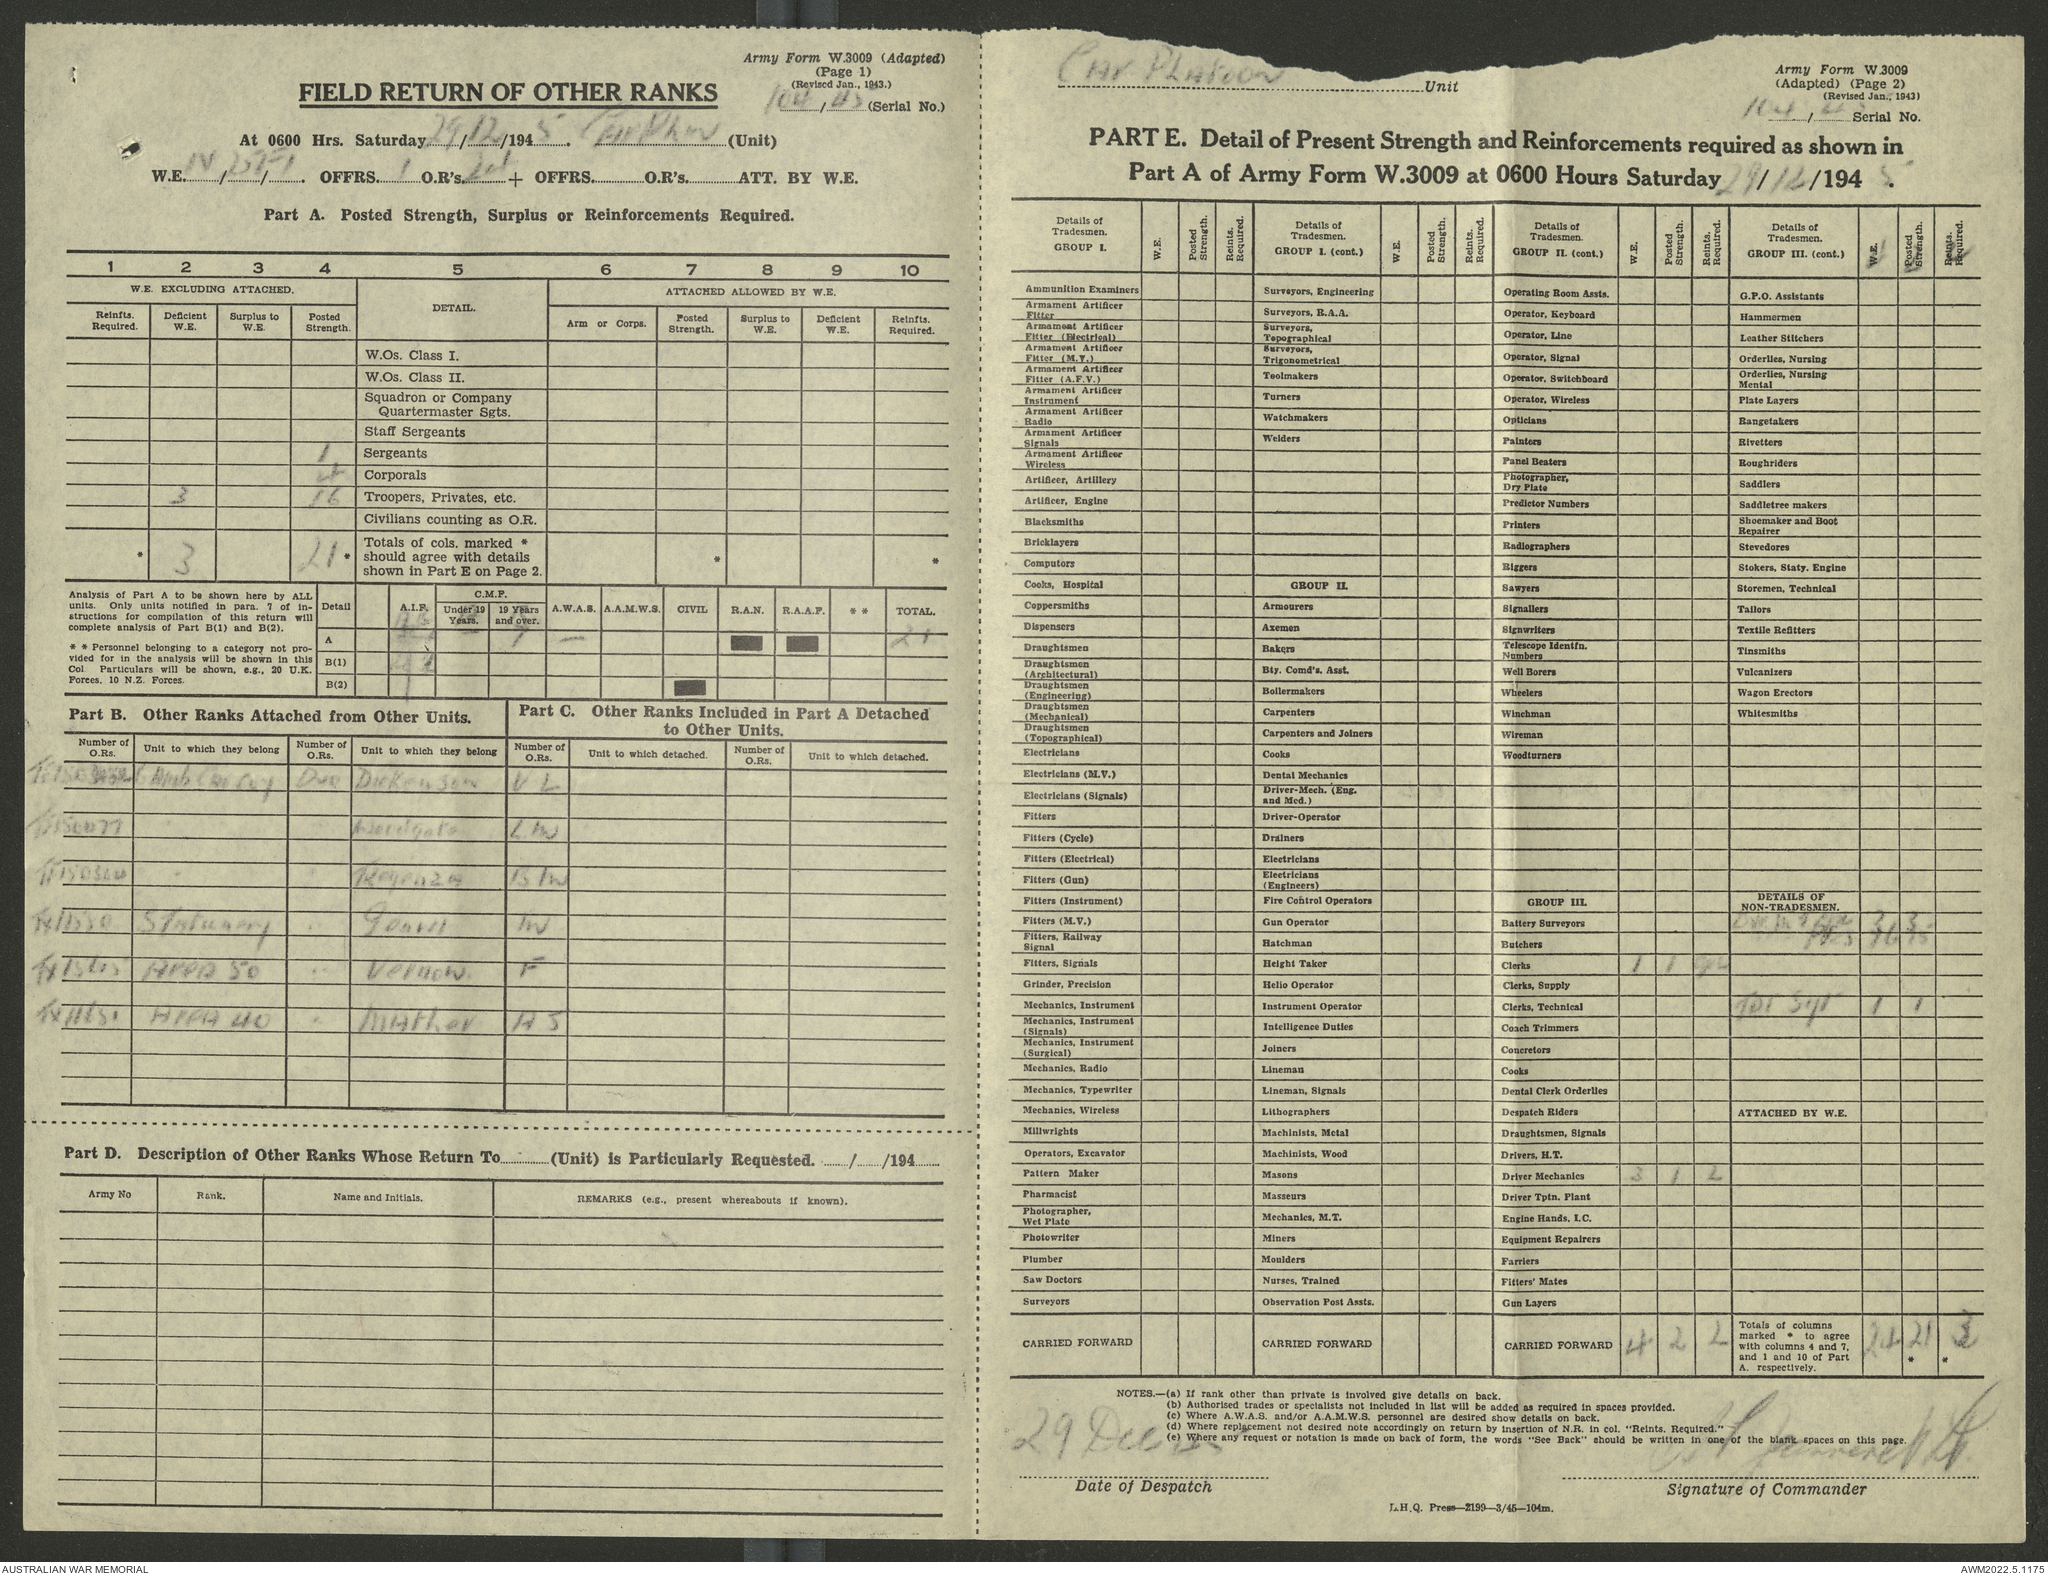 Army Form W.3009 (Adapted)
(Page 1)
(Revised Jan., 1943.)
104/45 (Serial No.)
FIELD RETURN OF OTHER RANKS
At 0600 Hrs. Saturday 29/12/1945. Car Platoon (Unit)
W.E. IV/257/1 OFFRS. 1 O.R's. 24 + OFFRS. O.R's. ATT. BY W.E.
Part A. Posted Strength, Surplus or Reinforcements Required.
1 2 3 4 5 6 7 8 9 10
W.E. EXCLUDING ATTACHED. DETAIL. ATTACHED ALLOWED BY W.E.
Reinfts. Required. Deficient W.E. Surplus to W.E. Posted Strength. Arm or Corps. Posted Strength. Surplus to W.E. Deficient W.E. Reinfts. Required.
W.Os. Class I.
W.Os. Class II.
Squadron or Company
Quartermaster Sgts.
Staff Sergeants
1 Sergeants
4 Corporals
3 16 Troopers, Privates, etc.
Civilians counting as O.R.
Totals of cols. marked *
* 3 21 * should agree with details * *
shown in Part E on Page 2.
Analysis of Part A to be shown here by ALL
units. Only units notified in para. 7 of in-
structions for compilation of this return will
complete analysis of Part B(1) and B(2).
* * Personnel belonging to a category not pro-
vided for in the analysis will be shown in this
Col. Particulars will be shown, e.g., 20 U.K.
Forces, 10 N.Z. Forces.
Detail A.I.F. C.M.F. Under 19 Years. 19 Years and over. A.W.A.S. A.A.M.W.S. CIVIL R.A.N. R.A.A.F. * * TOTAL.
A 7 — 21
B(1)
B(2)
Part B. Other Ranks Attached from Other Units.
Part C. Other Ranks Included in Part A Detached
to Other Units.
Number of O.Rs. Unit to which they belong Number of O.Rs. Unit to which they belong Number of O.Rs. Unit to which detached. Number of O.Rs. Unit to which detached.
Amb Car Coy Dvr Dickenson V L
L W
B W
Stationery W
AFPA 50 Vernon. F
AFPA 40 Mather A S
Part D. Description of Other Ranks Whose Return To (Unit) is Particularly Requested. / /194
Army No Rank. Name and Initials. REMARKS (e.g., present whereabouts if known).
Car Platoon Unit
Army Form W.3009
(Adapted) (Page 2)
(Revised Jan., 1943)
104/45 Serial No.
PART E. Detail of Present Strength and Reinforcements required as shown in
Part A of Army Form W.3009 at 0600 Hours Saturday 29/12/1945.
Details of Tradesmen. GROUP I. W.E. Posted Strength. Reints. Required.
Ammunition Examiners
Armament Artificer Fitter
Armament Artificer Fitter (Electrical)
Armament Artificer Fitter (M.V.)
Armament Artificer Fitter (A.F.V.)
Armament Artificer Instrument
Armament Artificer Radio
Armament Artificer Signals
Armament Artificer Wireless
Artificer, Artillery
Artificer, Engine
Blacksmiths
Bricklayers
Computors
Cooks, Hospital
Coppersmiths
Dispensers
Draughtsmen
Draughtsmen (Architectural)
Draughtsmen (Engineering)
Draughtsmen (Mechanical)
Draughtsmen (Topographical)
Electricians
Electricians (M.V.)
Electricians (Signals)
Fitters
Fitters (Cycle)
Fitters (Electrical)
Fitters (Gun)
Fitters (Instrument)
Fitters (M.V.)
Fitters, Railway Signal
Fitters, Signals
Grinder, Precision
Mechanics, Instrument
Mechanics, Instrument (Signals)
Mechanics, Instrument (Surgical)
Mechanics, Radio
Mechanics, Typewriter
Mechanics, Wireless
Millwrights
Operators, Excavator
Pattern Maker
Pharmacist
Photographer, Wet Plate
Photowriter
Plumber
Saw Doctors
Surveyors
CARRIED FORWARD
Details of Tradesmen. GROUP I. (cont.) W.E. Posted Strength. Reints. Required.
Surveyors, Engineering
Surveyors, R.A.A.
Surveyors, Topographical
Surveyors, Trigonometrical
Toolmakers
Turners
Watchmakers
Welders
GROUP II.
Armourers
Axemen
Bakers
Bty. Comd's. Asst.
Boilermakers
Carpenters
Carpenters and Joiners
Cooks
Dental Mechanics
Driver-Mech. (Eng. and Med.)
Driver-Operator
Drainers
Electricians
Electricians (Engineers)
Fire Control Operators
Gun Operator
Hatchman
Height Taker
Helio Operator
Instrument Operator
Intelligence Duties
Joiners
Lineman
Lineman, Signals
Lithographers
Machinists, Metal
Machinists, Wood
Masons
Masseurs
Mechanics, M.T.
Miners
Moulders
Nurses, Trained
Observation Post Assts.
CARRIED FORWARD
Details of Tradesmen. GROUP II. (cont) W.E. Posted Strength. Reints. Required.
Operating Room Assts.
Operator, Keyboard
Operator, Line
Operator, Signal
Operator, Switchboard
Operator, Wireless
Opticians
Painters
Panel Beaters
Photographer, Dry Plate
Predictor Numbers
Printers
Radiographers
Riggers
Sawyers
Signallers
Signwriters
Telescope Identfn. Numbers
Well Borers
Wheelers
Winchman
Wireman
Woodturners
GROUP III.
Battery Surveyors
Butchers
Clerks 1 1
Clerks, Supply
Clerks, Technical
Coach Trimmers
Concretors
Cooks
Dental Clerk Orderlies
Despatch Riders
Draughtsmen, Signals
Drivers, H.T.
Driver Mechanics 3 1 2
Driver Tptn. Plant
Engine Hands, I.C.
Equipment Repairers
Farriers
Fitters' Mates
Gun Layers
CARRIED FORWARD 4 2 2
Details of Tradesmen. GROUP III. (cont.) W.E. Posted Strength. Reints. Required.
G.P.O. Assistants
Hammermen
Leather Stitchers
Orderlies, Nursing
Orderlies, Nursing Mental
Plate Layers
Rangetakers
Rivetters
Roughriders
Saddlers
Saddletree makers
Shoemaker and Boot Repairer
Stevedores
Stokers, Staty. Engine
Storemen, Technical
Tailors
Textile Refitters
Tinsmiths
Vulcanizers
Wagon Erectors
Whitesmiths
DETAILS OF NON-TRADESMEN.
3 3
16 15
Tpt Sgt 1 1
ATTACHED BY W.E.
Totals of columns marked * to agree with columns 4 and 7, and 1 and 10 of Part A. respectively. 24 21 * 3 *
NOTES.—(a) If rank other than private is involved give details on back.
(b) Authorised trades or specialists not included in list will be added as required in spaces provided.
(c) Where A.W.A.S. and/or A.A.M.W.S. personnel are desired show details on back.
(d) Where replacement not desired note accordingly on return by insertion of N.R. in col. "Reints. Required."
(e) Where any request or notation is made on back of form, the words "See Back" should be written in one of the blank spaces on this page.
29 Dec 45
Date of Despatch
Signature of Commander
L.H.Q. Press—2199—3/45—104m.
AUSTRALIAN WAR MEMORIAL
AWM2022.5.1175